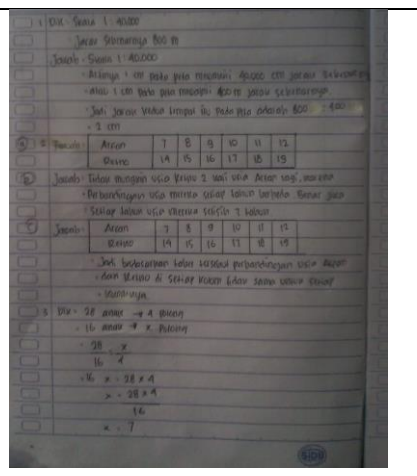 1 Dik : Skala 1 : 40.000
Jarak Sebenarnya 800 m
Jawab : Skala 1 : 40.000
Artinya 1 cm pada peta mewakili 40.000 cm jarak Sebenarnya
atau 1 cm pada peta mewakili 400 m jarak sebenarnya.
Jadi jarak kedua tempat itu pada peta adalah 800 : 400
= 2 cm
2 Jawab : 7 8 9 10 11 12
14 15 16 17 18 19
Jawab : Tidak mungkin usia 2 kali usia lagi, karena
Perbandingan usia mereka setiap tahun berbeda.
Setiap tahun usia mereka selisih 7 tahun
Jawab : 7 8 9 10 11 12
14 15 16 17 18 19
Jadi berdasarkan tabel tersebut perbandingan usia
dan di setiap tidak sama
3 Dik : 28 anak → 4
16 anak → x
28 x
16 4
16 x = 28 x 4
x = 28 x 4
16
x = 7
SIDU